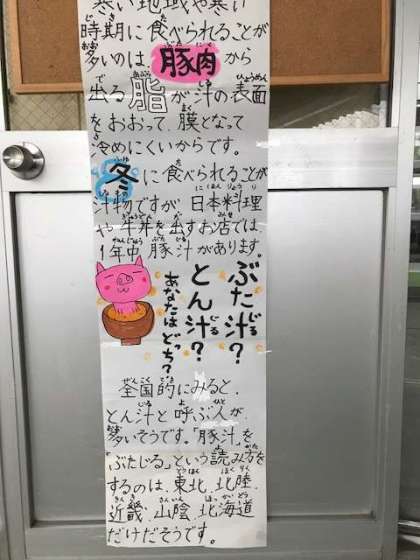 寒い地域や寒い
時期に食べられることが
多いのは、豚肉から
出る脂が汁の表面
をおおって、膜となって
冷めにくいからです。
冬に食べられることが
汁物ですが、日本料理
や牛丼を出すお店では、
1年中豚汁があります。
ぶた汁?
とん汁?
あなたはどっち?
全国的にみると、
とん汁と呼ぶ人が、
多いそうです。「豚汁」を
「ぶたじる」という読み方を
するのは、東北、北陸、
近畿、山陰、北海道
だけだそうです。